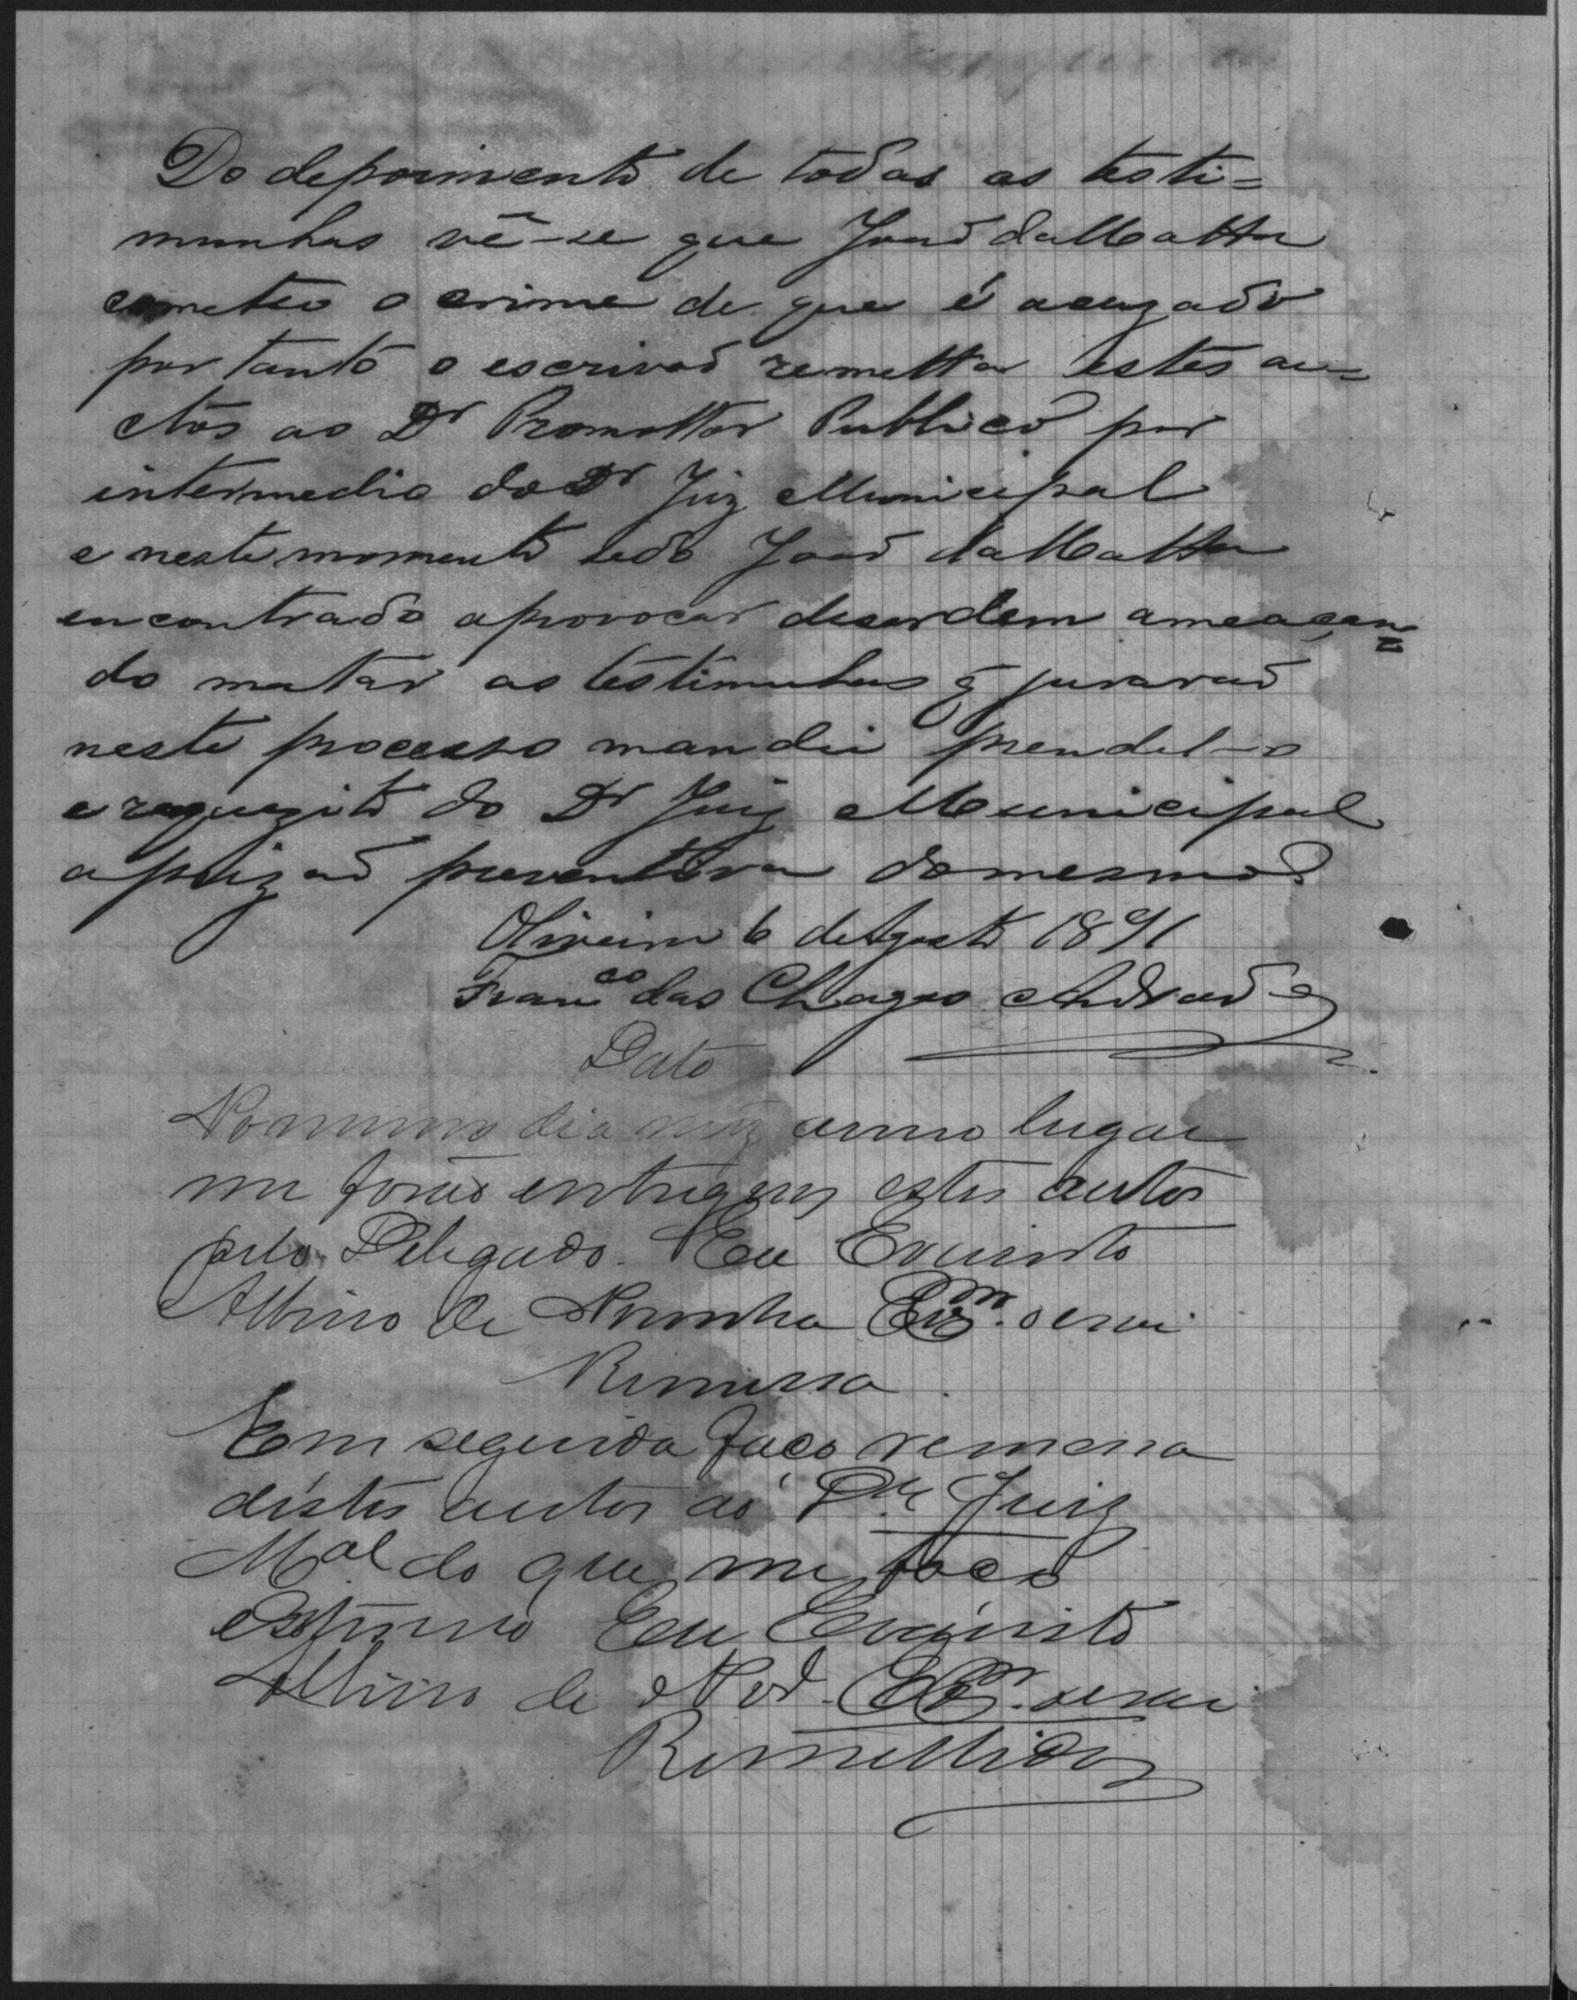 Do depoimento de todas as testi=
munhas vê-se que João da Matta
cometeo o crime de que é acuzado
por tanto o escrivão remetta estes au=
ctos ao Dr Promottor Publico por
intermedio do Dr Juiz Municipal
e neste momento sedo João da Matta
encontrado a provocar desordem ameaçan=
do matar as testimunhas q̃ jurarão
neste processo mandei prendel-o
e requezito do Dr Juiz Municipal
a prizão preventiva do mesmo
Oliveira 6 de Agosto 1891
Franco das Chagas Andrade
Data
No mesmo dia mez anno lugar
me forão entregues estes autos
pelo Delegado. Eu Evaristo
Albino de Noronha Escm. o escrevi
Remessa
Em seguida faço remessa
distes autos ao Dr. Juiz
Mal do que me faço
este termo Eu Evaristo
Albino de Escm.
Remettidos